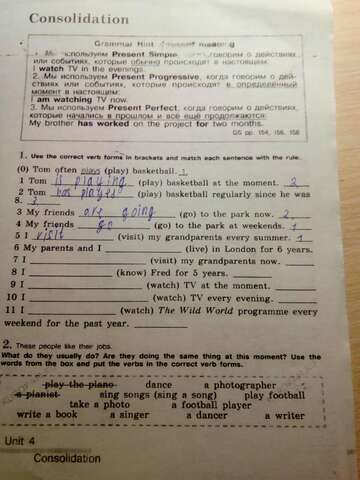 Consolidation
Grammar Hint (present meaning)
1. Мы используем Present Simple, когда говорим о действиях
или событиях, которые обычно происходят в настоящем:
I watch TV in the evenings.
2. Мы используем Present Progressive, когда говорим о дей-
ствиях или событиях, которые происходят в определённый
момент в настоящем:
I am watching TV now.
3. Мы используем Present Perfect, когда говорим о действиях,
которые начались в прошлом и всё ещё продолжаются:
My brother has worked on the project for two months.
GS pp. 154, 156, 158
1. Use the correct verb forms in brackets and match each sentence with the rule.
(0) Tom often plays (play) basketball. 1
1 Tom is playing (play) basketball at the moment. 2
2 Tom has played (play) basketball regularly since he was
8. 3
3 My friends are going (go) to the park now. 2
4 My friends go (go) to the park at weekends. 1
5 I visit (visit) my grandparents every summer. 1
6 My parents and I (live) in London for 6 years.
7 I (visit) my grandparents now.
8 I (know) Fred for 5 years.
9 I (watch) TV at the moment.
10 I (watch) TV every evening.
11 I (watch) The Wild World programme every
weekend for the past year.
2. These people like their jobs.
What do they usually do? Are they doing the same thing at this moment? Use the
words from the box end put the verbs in the correct verb forms.
play the piano dance a photographer
a pianist sing songs (sing a song) play football
take a photo a football player
write a book a singer a dancer a writer
Unit 4
Consolidation